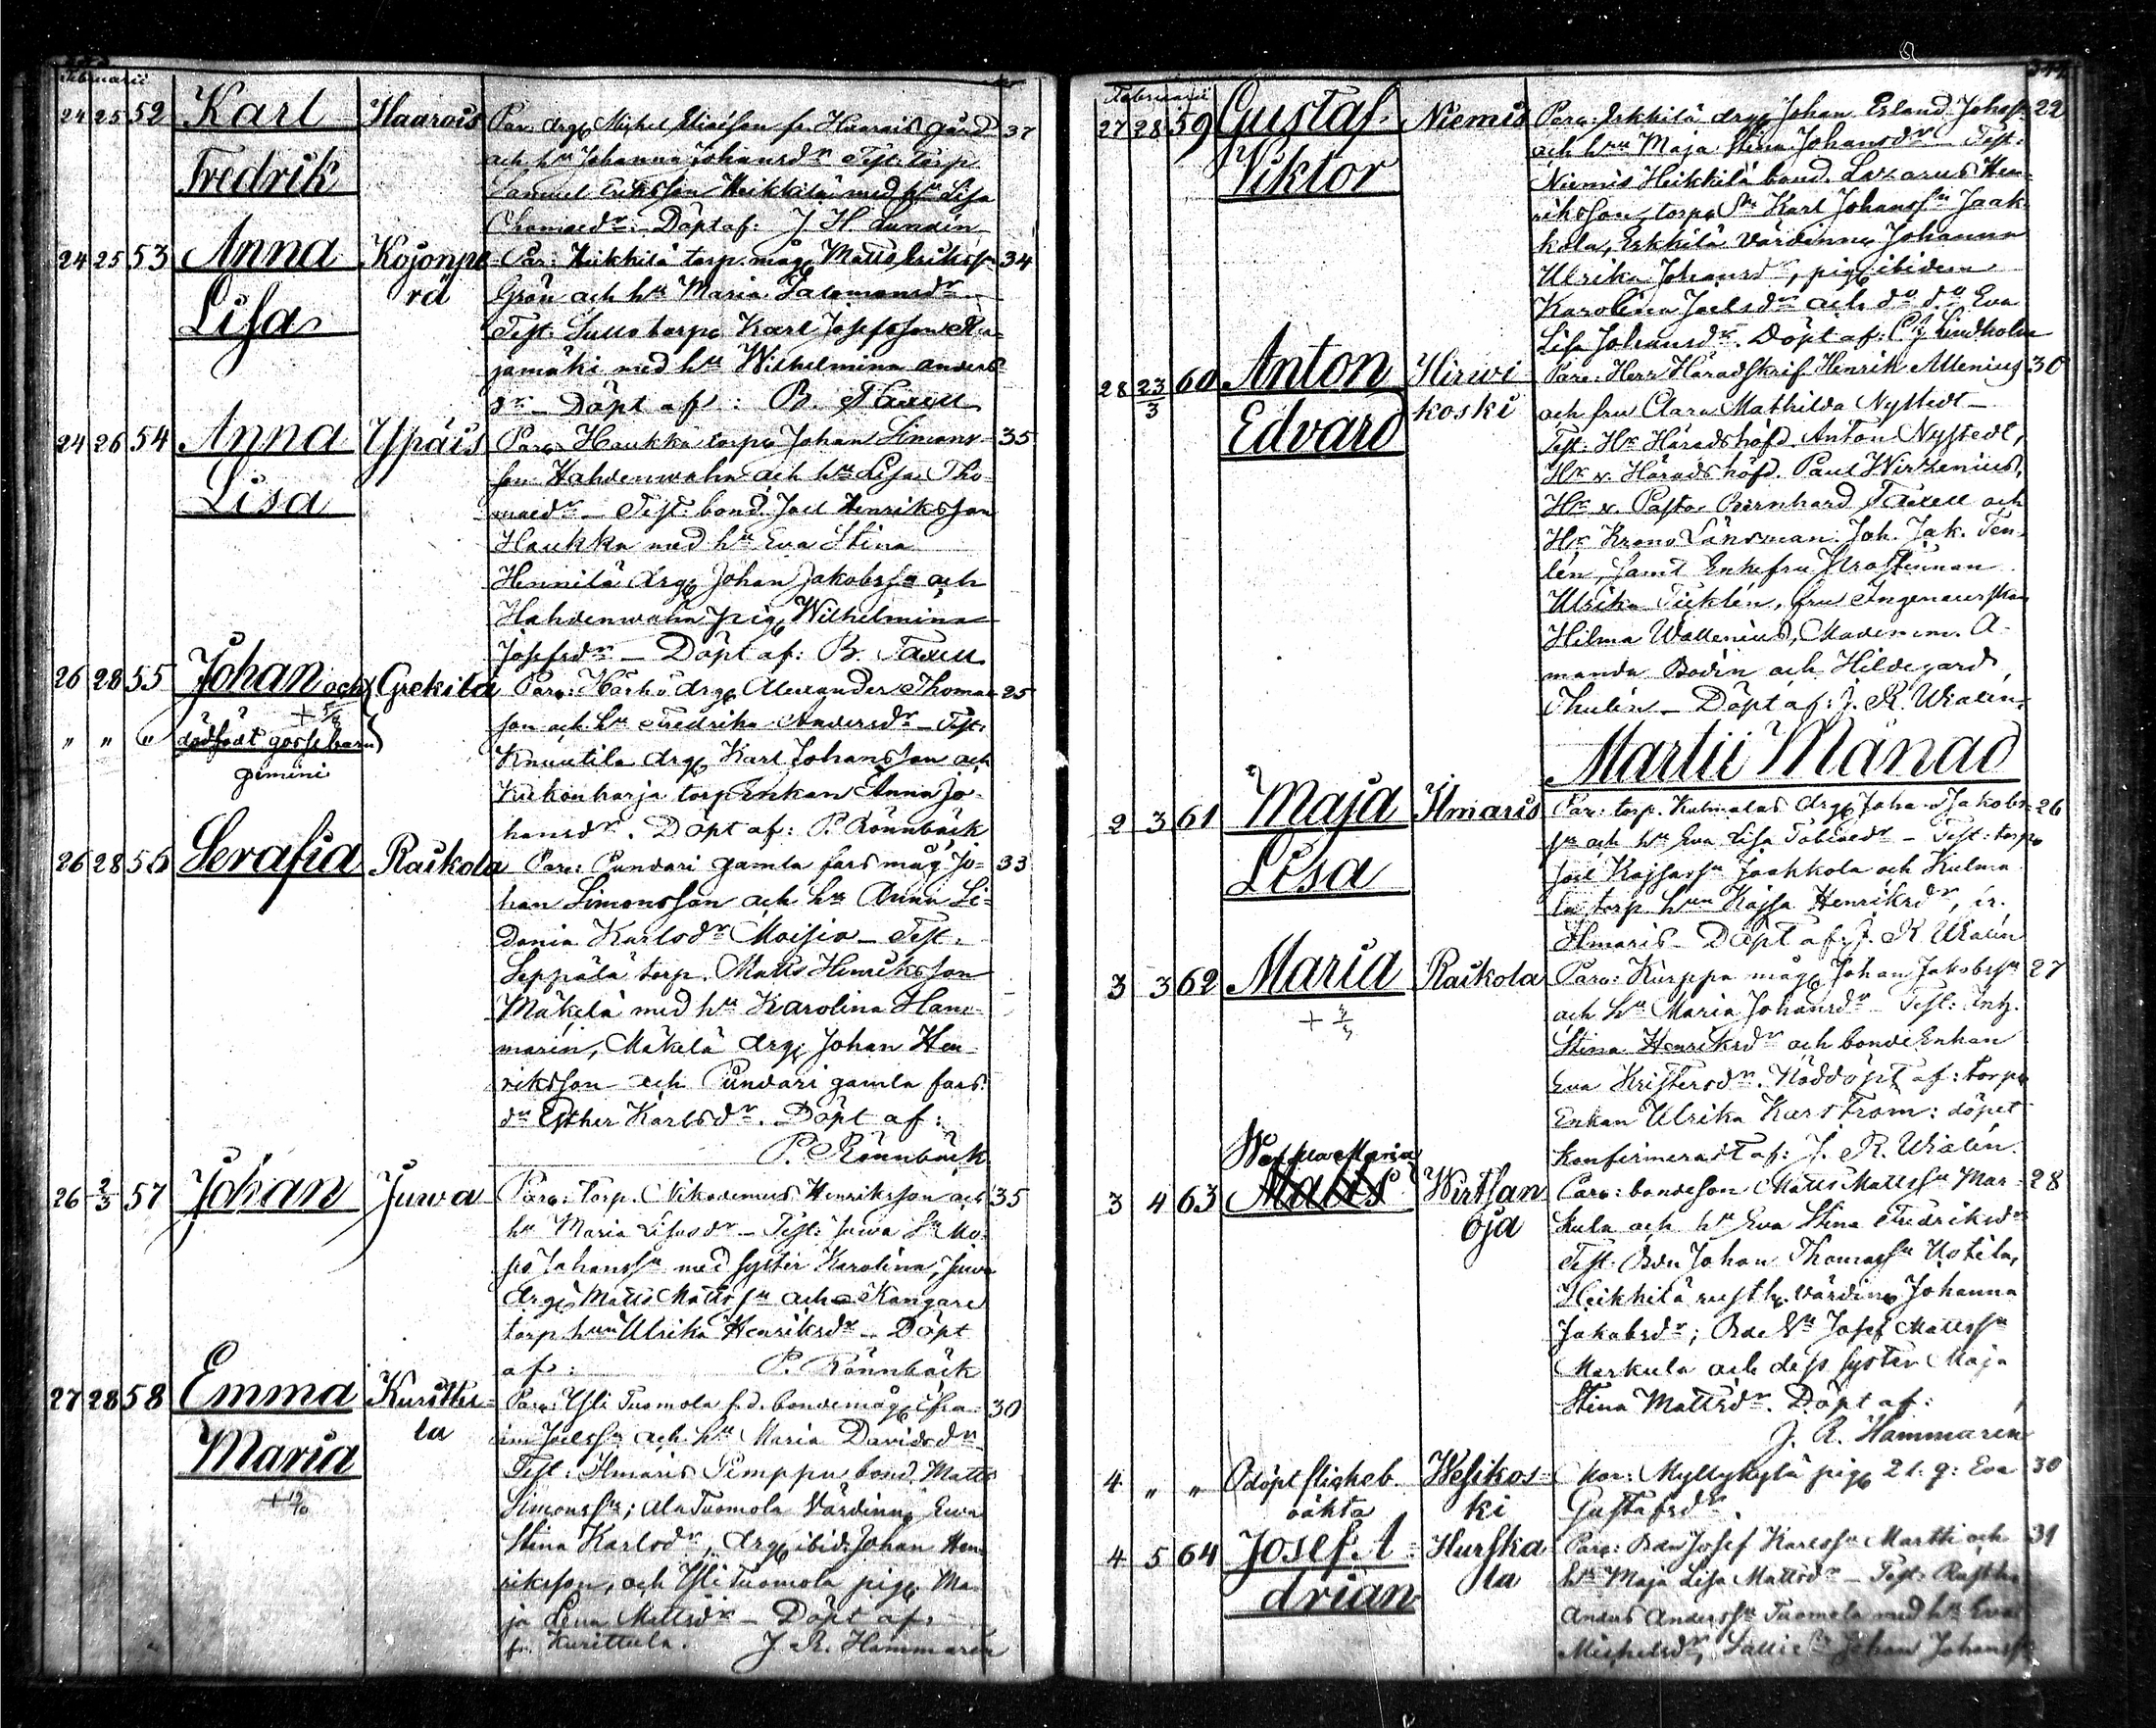 Februarii
24 25 52 Karl Haarois Par: drg Michel Eliaisson fr. Haarois gård 37
Fredrik och hu Johanna Johansdr Test: torp.
Samuel Eriksson Heikkilä med hu Lisa
Thomædr. Döpt af: J. H. Lunden
24 25 53 Anna Kojonpe Par: Heikkilä torp. måg Matts Eriksson 34
rä
Lisa Grön och hu Maria Salomonsdr
Test: Sullo torp. Karl Josefsson Ru
jamäki med hu Wilhelmina Anders
dr – Döpt af: B. Taxell
24 26 54 Anna Ypäis Par: Haukka torp. Johan Simons 35
Lisa son Hahdenwaha och hu Lisa Tho
mædr – Test: bond. Joel Henriksson
Haukka med hu Eva Stina
Hennilä drg Johan Jakobsson och
Hahdenwaha pig Wilhelmina
Josefsdr – Döpt af: B. Taxell
26 28 55 Johan och Grekilä Par: Harho drg Alexander Thomas 25
+ 5/8
" " " dödfödt gossebarn son och hu Fredrika Andersdr – Test:
gemini Knuutila drg Karl Johansson och
Kukonharja torp enkan Anna Jo
hansdr. Döpt af: P. Rönnbäck
26 28 56 Serafia Raikola Par: Pundari gamla fars måg Jo- 33
han Simonsson och hu Anna Li-
donia Karlsdr Moisio – Test:
Seppälä torp. Matts Henriksson
Mäkelä med hu Karolina Ham-
marin, Mäkelä drg Johan Hen
riksson och Pundari gamla fars
dr Esther Karlsdr. Döpt af:
P. Rönnbäck
26 2/3 57 Johan Juwa Par: torp. Nikodemus Henriksson och 35
hu Maria Lisasdr – Test: Juwa Sn Mo
ses Johansson med syster Karolina, Juwa
drg Matts Mattsson och Kangare
torp. hun Ulrika Henriksdr – Döpt
af: P. Rönnbäck
27 28 58 Emma Kurittu- Par: Yli Tuomola f.d. bondemåg Efra 30
la
im Joelsson och hu Maria Davidsdr
Maria Test: Ilmaris Pimppu bond. Matts
Simonsson; Ala Tuomola Värdinn Eva
Stina Karlsdr, drg ibid. Johan Hen
riksson, och Yli Tuomola pig Ma
ja Lena Mattsdr – Döpt af
fr. Kurittula. J. R. Hammarén
Februarii 344
27 28 59 Gustaf Niemis Par: Erkkilä drg Johan Erland Johss 22
Viktor och hun Maja Stina Johansdr – Test:
Niemis Heikkilä bond. Lazarus Hen
riksson, torp. Sn Karl Johansson Jaak
kola, Erkkilä värdinn Johanna
Ulrika Johansdr, pig ibidem
Karolina Joelsdr och do do Eva
Lisa Johansdr. Döpt af: Lindholm
28 23/3 60 Anton Hirwi Par: Herr Häradsskrif Henrik Allenius 30
koski
Edvard och fru Clara Mathilda Nystedt –
Test: Hr Häradshöfd. Anton Nystedt,
Hr v. Häradshöfd. Paul Wirzenius,
Hr v. Pastor Bernhard Taxell och
Hr Krono Länsman Joh. Jak. Ten
lén, samt Enkefru Prostinnan
Ulrika Ticklén, fru Ingeneurskan
Hilma Wallenius, Madem. A-
manda Bodin och Hildegard
Thulén – Döpt af: J. R. Uralin
Martii Månad
2 3 61 Maja Ilmaris Par: torp. Kulmalas drg Johan Jakobs 26
Lisa sn och hu Eva Lisa Tobiædr – Test: torp.
Joel Kajsasson Jaakkola och Kulma
la torp. hun Kajsa Henriksdr, fr.
Ilmaris – Döpt af: J. R. Uralin
3 3 62 Maria Raikola Par: Kurppa måg Johan Jakobsson 27
och hu Maria Johansdr – Test: Enk.
Stina Henriksdr och bonde Enkan
Eva Kristersdr. Nöddöpt af: torp.
Enkan Ulrika Kurström: döpet
Konfirmeradt af: J. R. Uralin.
Maria
3 4 63 Matts Wirtsan Par: bondeson Matts Mattsson Mar- 28
oja kula och hu Eva Stina Fredriksdr
Test: Bdn Johan Thomasson Uotila,
Heikkilä rusth. värdinn Johanna
Jakobsdr; Bde Sn Josef Mattsson
Markula och dess syster Maja
Stina Mattsdr. Döpt af:
J. R. Hammarén
4 " " Odöpt flickeb. Wesikos- Mor: Myllykylä pig 21. g: Eva 30
oäkta ki Gustafsdr.
4 5 64 Josef A- Hurska Par: Bdn Josef Karlsson Martti och 31
drian la hu Maja Lisa Mattsdr – Test: Rusth.
Anders Andersson Tuomola med hu Eva
Michelsdr, Johan Johansson